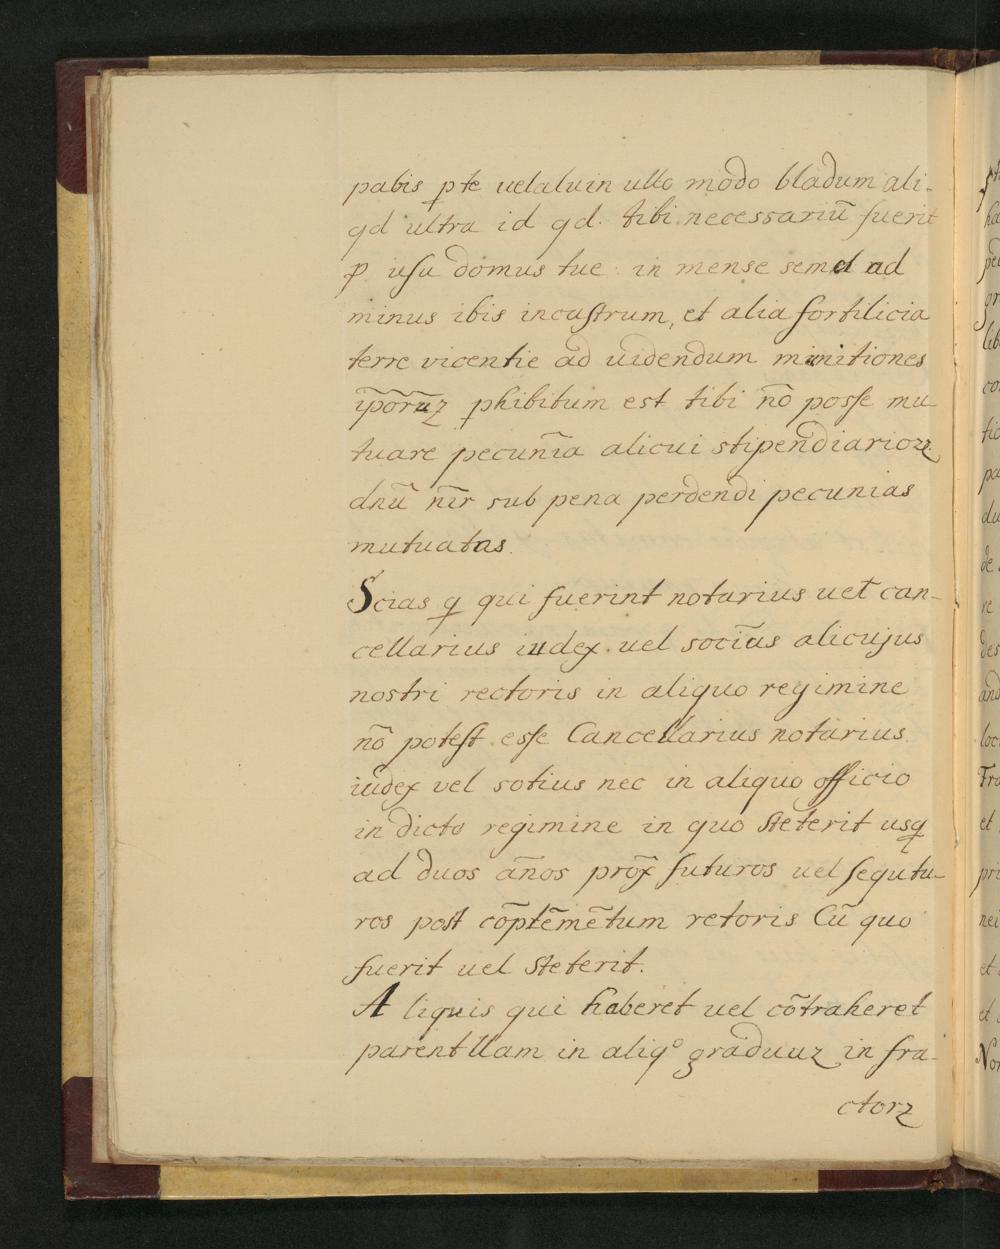 pabis p̱te uelaluin ullo modo bladum ali-
qd ultra id qd. tibi necessariū fuerit
p̱ usu domus tue. in mense semel ad
minus ibis incastrum, et alia fortilicia
terre vicentie ad uidendum munitiones
ip̃oruz p̱hibitum est tibi nō posse mu-
tuare pecunĩa alicui stipendiarioz
dnū nĩr sub pena perdendi pecunias
mutuatas.
Scias q̱ qui fuerint notarius uel can-
cellarius iudex. uel socĩus alicujus
nostri rectoris in aliquo regimine
nō potest esse Cancellarius notarius.
iudex vel sotius nec in aliquo officio
in dicto regimine in quo steterit usq̱
ad duos an̄os prox̃ futuros uel sequtu-
ros post cōplēmētum retoris Cū quo
fuerit uel steterit.
Aliquis qui haberet uel cōtraheret
parentllam in aliqº graduuz in fra-
ctorz